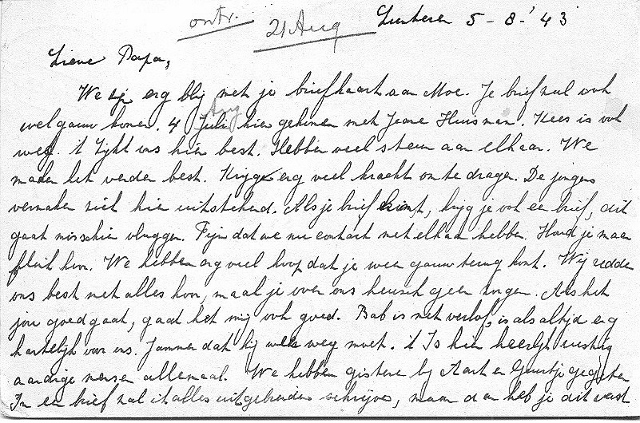 ontv. 21 Aug Lunteren 5-8-'43
Lieve Papa,
We zijn erg blij met je briefkaart aan Moe. Je brief zal ook
wel gauw komen. 4 Juli Aug hier gekomen met Jeane Huisman. Kees is ook
weg. 't Lijkt ons hier best. Hebben veel steun aan elkaar. We
maken het verder best. Krijgen erg veel kracht om te dragen. De jongens
vermaken zich hier uitstekend. Als je brief komt, krijg je ook een brief, dit
gaat misschien vlugger. Fijn dat we nu contact met elkaar hebben. Houd je maar
flink hoor. We hebben erg veel hoop dat je weer gauw terug komt. Wij redden
ons best met alles hoor, maak je over ons heusch geen zorgen. Als het
jou goed gaat, gaat het mij ook goed. Bab is met verlof, is als altijd erg
hartelijk voor ons. Jammer dat hij weer weg moet. 't Is hier heerlijk rustig
aardige mensen allemaal. We hebben gisteren bij Aart en Geurtje gegeten
In een brief zal ik alles uitgebreider schrijven, maar dan heb je dit vast